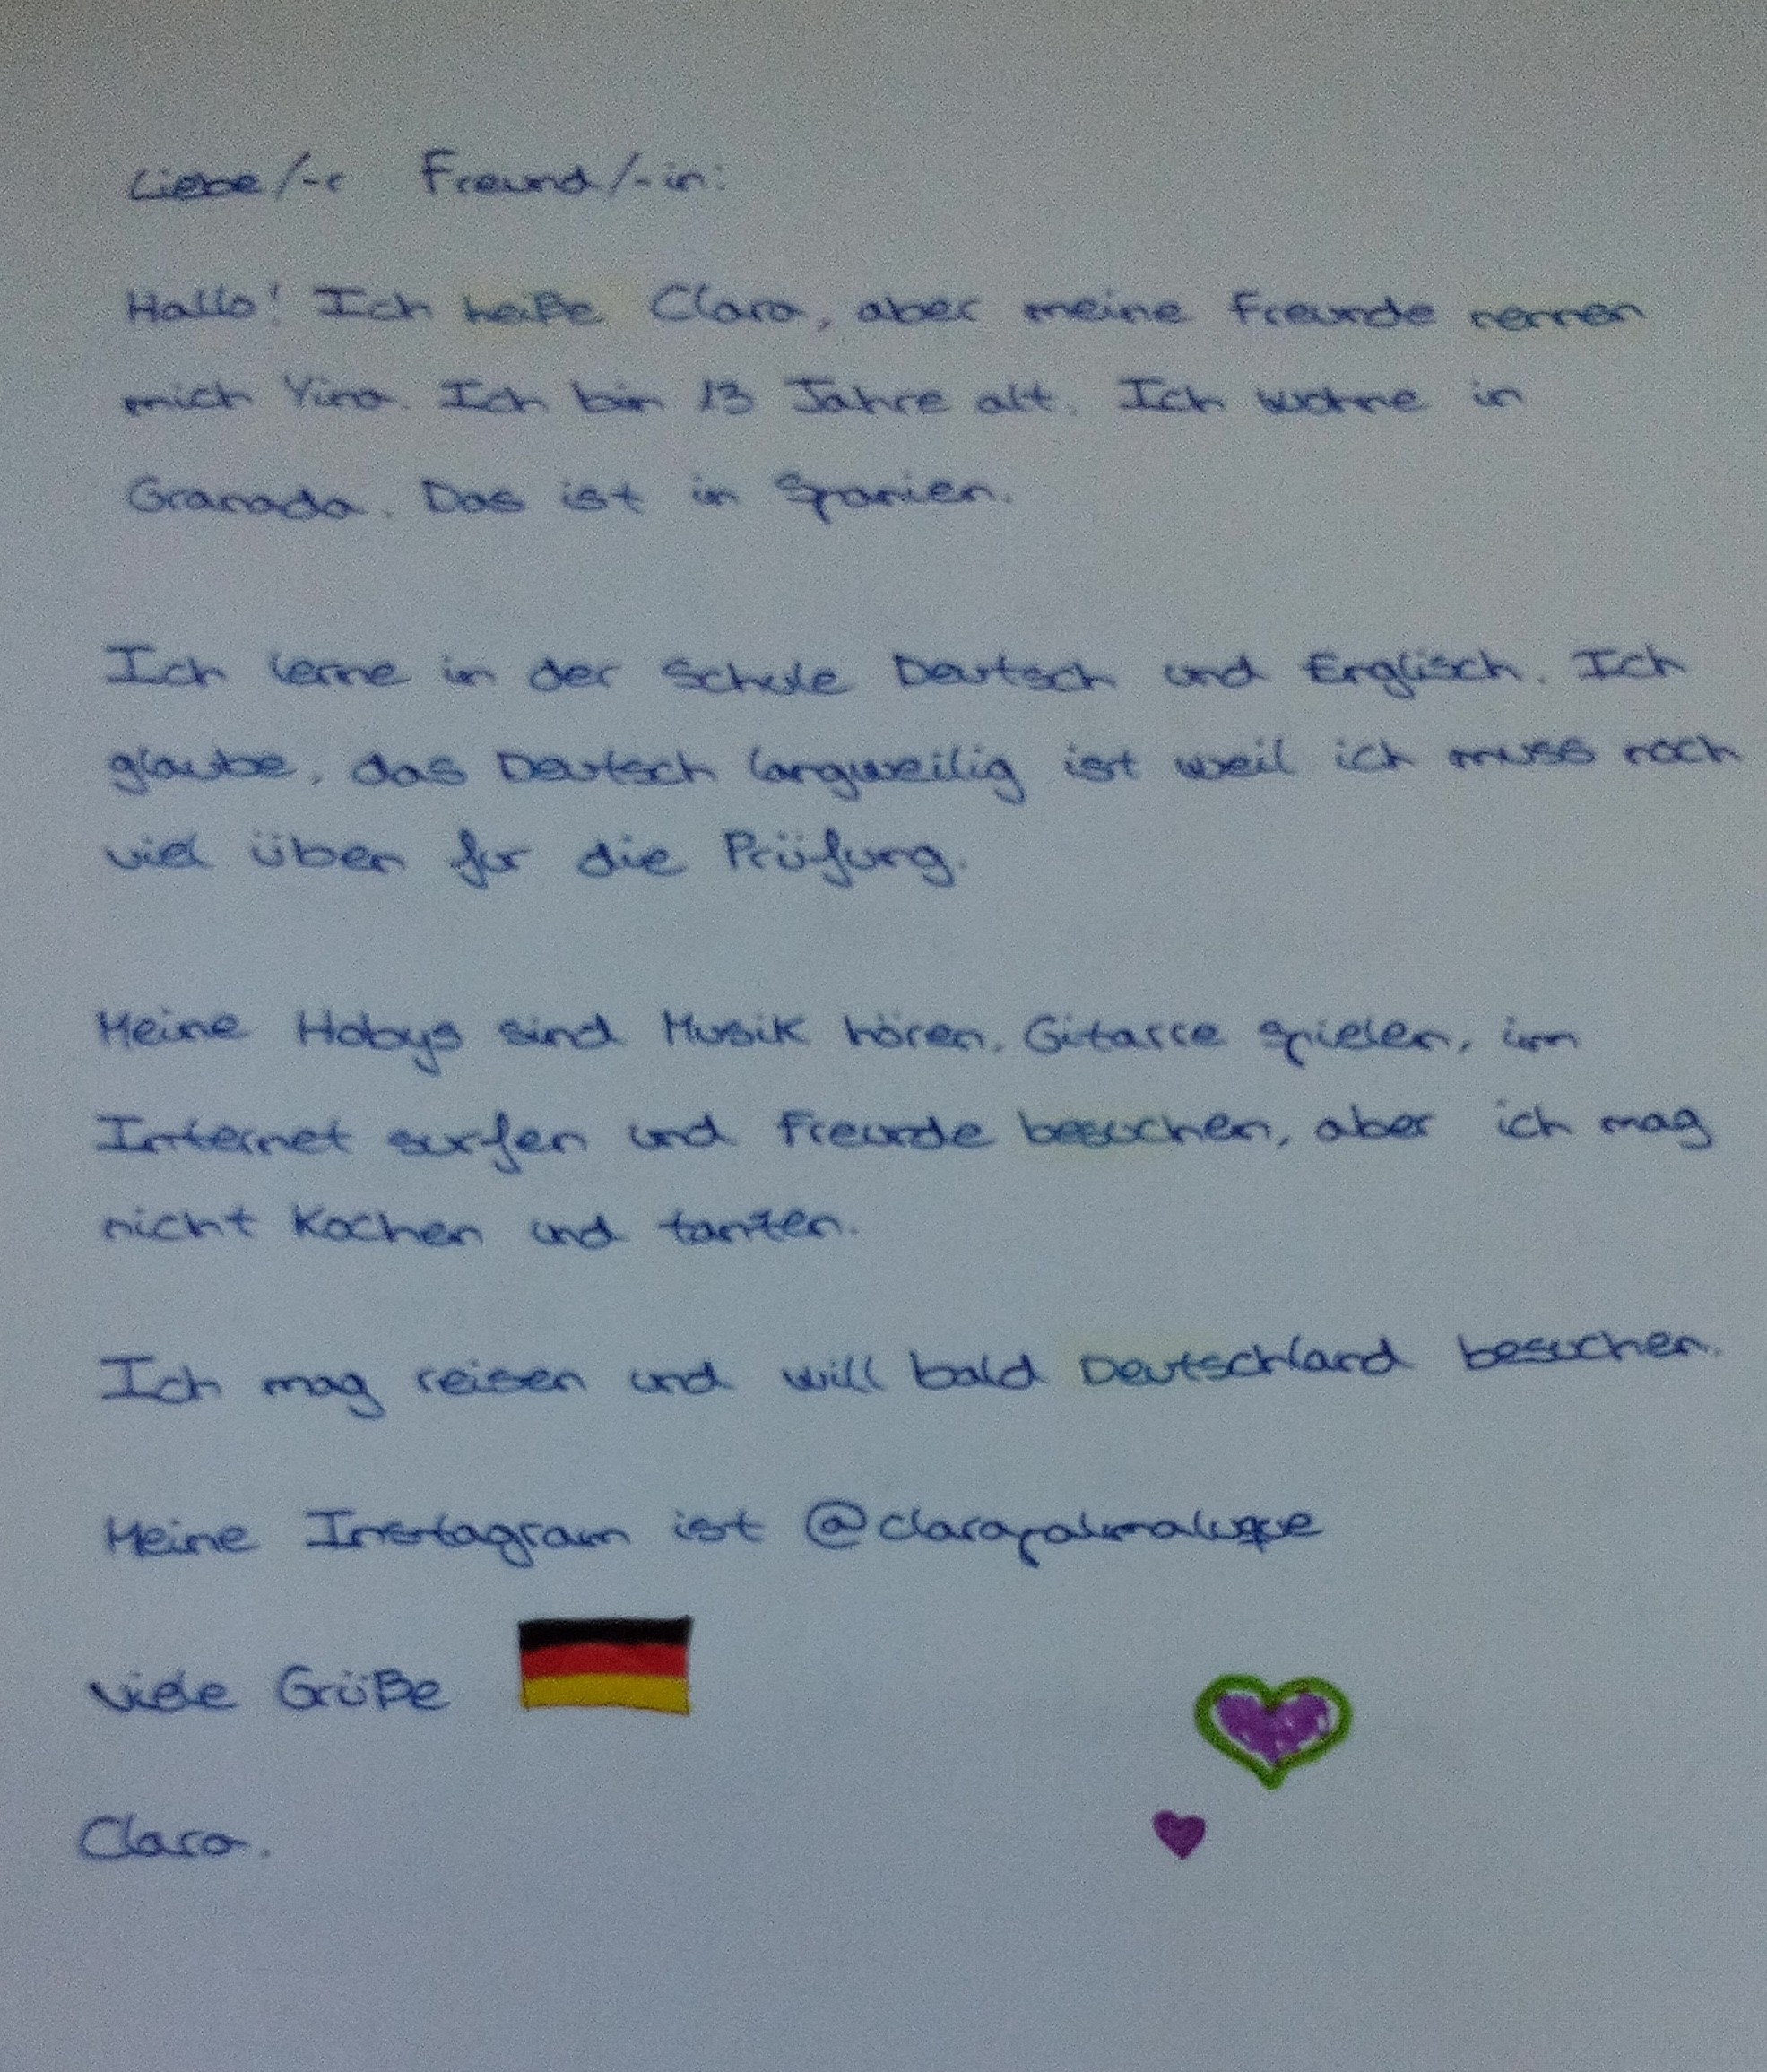 Liebe/-r Freund/-in:
Hallo! Ich heiße Clara, aber meine Freunde nennen
mich Yina. Ich bin 13 Jahre alt. Ich wohne in
Granada. Das ist in Spanien.
Ich lerne in der Schule Deutsch und Englisch. Ich
glaube, das Deutsch langweilig ist weil ich muss noch
viel üben für die Prüfung.
Meine Hobys sind Musik hören, Gitarre spielen, im
Internet surfen und Freunde besuchen, aber ich mag
nicht Kochen und tanzen.
Ich mag reisen und will bald Deutschland besuchen.
Meine Instagram ist @clarapalmaluque
viele Grüße
Clara.